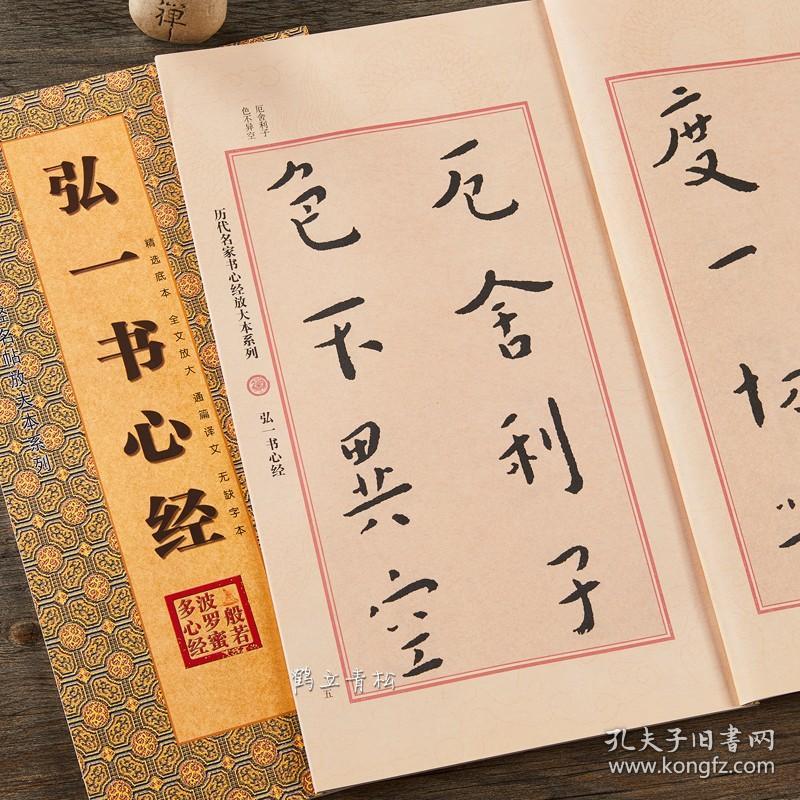 禅
弘一书心经
精选底本 全文放大 通篇译文 无缺字本
名帖放大本系列
般若
波罗蜜
多心经
度一切
厄舍利子
色不異空
厄舍利子
色不异空
历代名家书心经放大本系列
弘一书心经
五
鹤立青松
孔夫子旧书网
www.kongfz.com